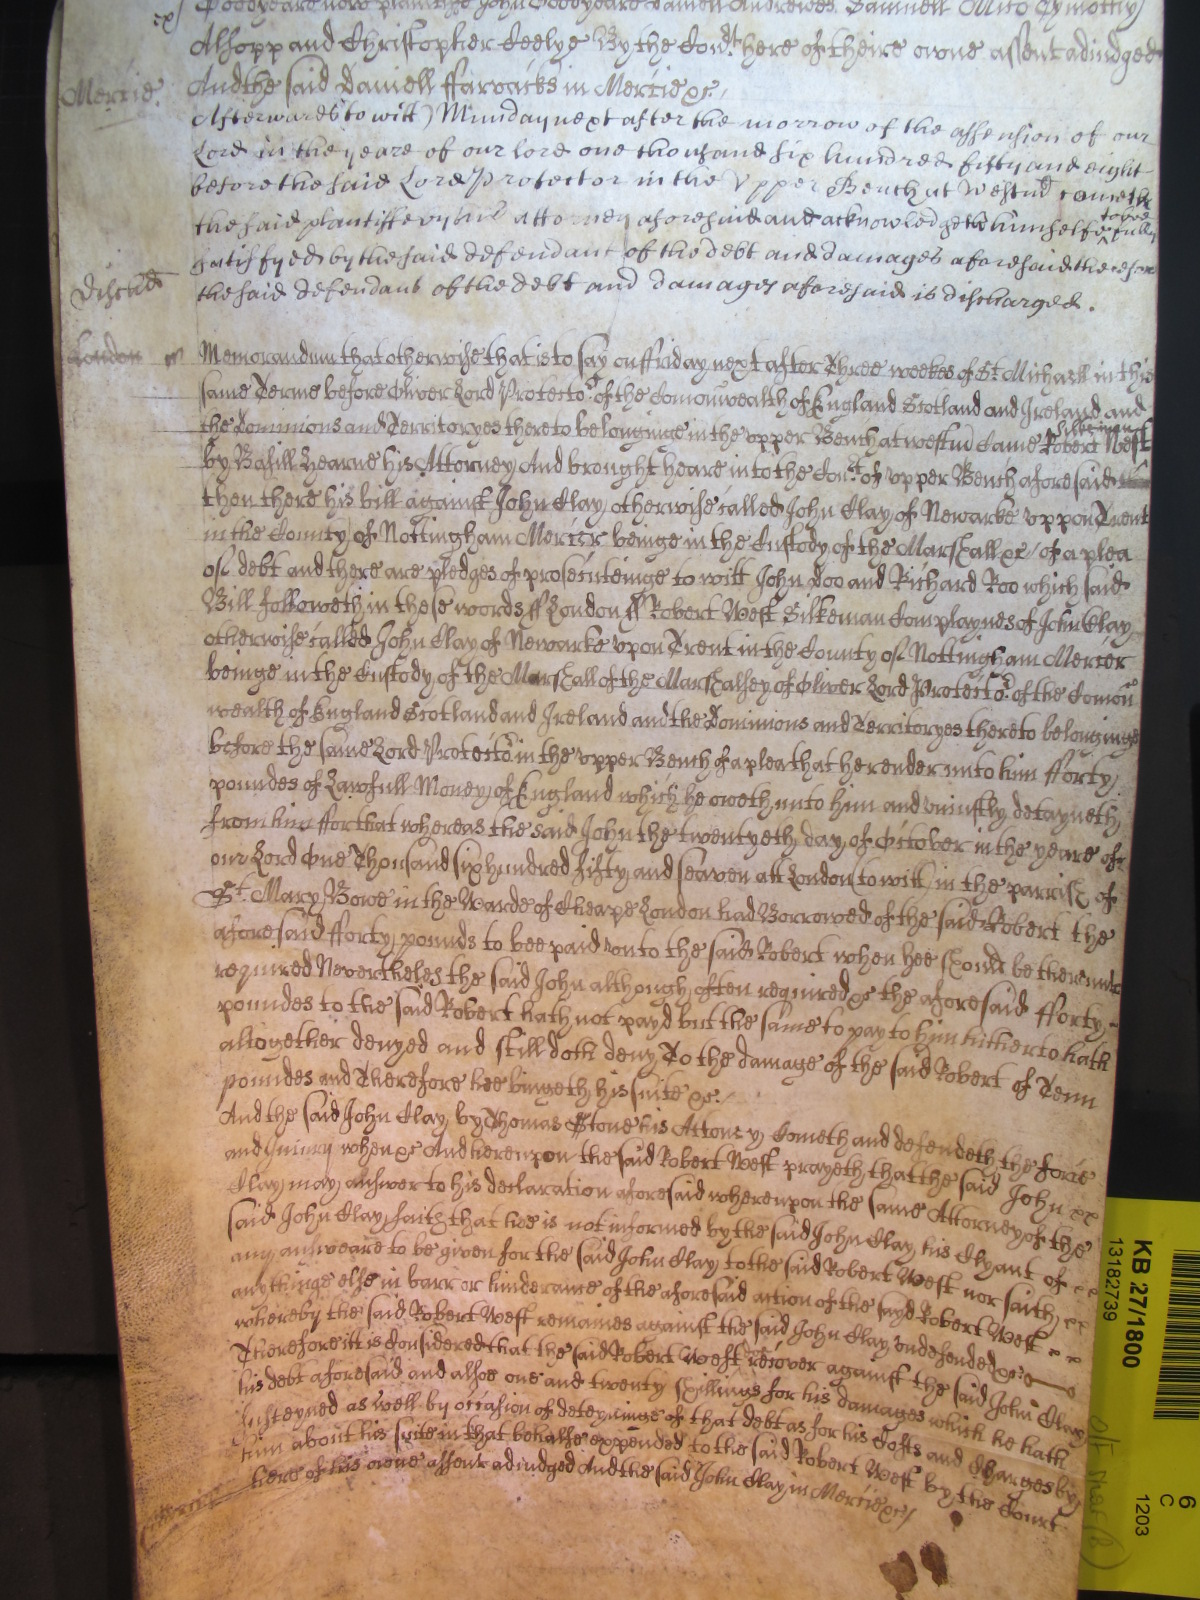 Goodyeare now plaintiffe John Goodyeare Daniell Andrewes Samuell
Alsopp and Christopher Ceelye By the Cort. here of theire owne assent adiudged
Mercie.
And the said Daniell ffarvacks in Mercie xc./
Afterwards to witt) Munday next after the morrow of the assension of our
Lord in the yeare of our lord one thousand six hundred fifty and eight
before the said Lord Protector in the Upper Bench at Westm̃ cometh
the said plantiffe by his attorney aforesaid and acknowledgeth himselfe ^to bee fully
satisfyed by the said defendant of the debt and damages aforesaid therefore
Discħd
the said defendant of the debt and damages aforesaid is discharged.
London ss
Memorandum that otherwise that is to say on ffriday next after Three weekes of St. Michaell in this
same Terme before Oliver Lord Protector. of the Comonwealth of England Scotland and Ireland and
the Dominions and Territoryes thereto belonginge in the upper Bench at westm̃ Came Robert West Silkeman
by Basill Hearne his Attorney And brought heare into the Cort. of upper Bench aforesaid
then there his bill against John Clay otherwise called John Clay of Newarke uppon Trent
in the County of Nottingham Mercer beinge in the Custody of the Marshall xc/ of a plea
of debt and there are pledges of prosecuteinge to witt John Doo and Richard Roo which said
Bill followeth in these words ss London ss Robert West Silkeman Complaynes of John Clay
otherwise called John Clay of Newarke upon Trent in the County of Nottingham Mercer
beinge in the Custody of the Marshall of the Marshalsey of Oliver Lord Protector. of the Comon
wealth of England Scotland and Ireland and the Dominions and Territoryes thereto belonginge
before the same Lord Protector in the upper Bench of a plea that he render unto him fforty
poundes of Lawfull Money of England which he oweth unto him and uniustly detayneth
from him ffor that whereas the said John the twentyeth day of October in the yeare of
our Lord One Thousand six hundred fifty and seaven att London (to witt) in the parrish of
St. Mary Bowe in the Warde of Cheape London had Borrowed of the said Robert the
aforesaid fforty pounds to bee paid unto the said Robert when hee should be thereunto
required Nevertheles the said John although often required xc the aforesaid fforty
poundes to the said Robert hath not payd but the same to pay to him hitherto hath
altogether denyed and still doth deny To the damage of the said Robert of Tenn
poundes and Therefore hee bingeth his suite xc./
And the said John Clay by Thomas Stone his Attorney Cometh and defendeth the force
and Iniury when xc And hereupon the said Robert West prayeth that the said John xx
Clay may answer to his declaration aforesaid whereupon the same Attorney of the
said John Clay saith that hee is not informed by the said John Clay his Clyant of
any answeare to be given for the said John Clay to the said Robert West nor saith
any thinge else in barr or hinderance of the aforesaid action of the sayd Robert West
whereby the said Robert West remaines against the said John Clay undefended xc.
Therefore it is Considered that the said Robert West recover against the said John Clay
his debt aforesaid and alsoe one and twenty shillings for his damages which he hath
susteyned as well by occasion of deteyninge of that debt as for his Costs and Charges by
him about his suite in that behalfe expended to the said Robert West by the Court
here of his owne assent adiudged And the said John Clay in Mercie xc/
KB 27/1800
13182739
6
C
1203